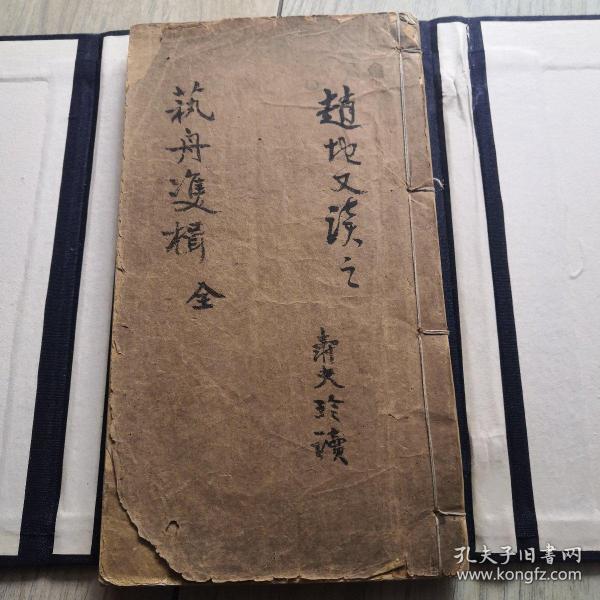 趙地又读之
夫珍讀
藝舟雙楫 全
孔夫子旧书网
www.kongfz.com